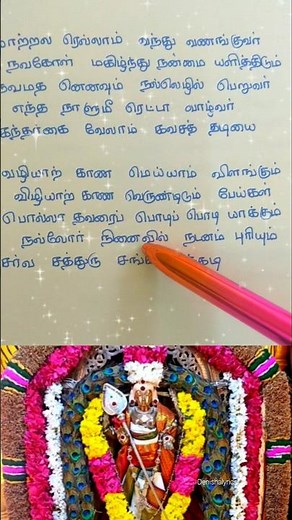 மாற்றல ரெல்லாம் வந்து வணங்குவர்
நவகோள் மகிழ்ந்து நன்மை யளித்திடும்
நவமத னெனவும் நல்லெழில் பெறுவர்
எந்த நாளுமீ ரெட்டா வாழ்வர்
கந்தர்கை வேலாம் கவசத் தடியை
வழியாற் காண மெய்யாம் விளங்கும்
விழியாற் காண வெருண்டிடும் பேய்கள்
பொல்லா தவரைப் பொடிப் பொடி யாக்கும்
நல்லோர் நினைவில் நடனம் புரியும்
சர்வ சத்துரு
Denishalyrics